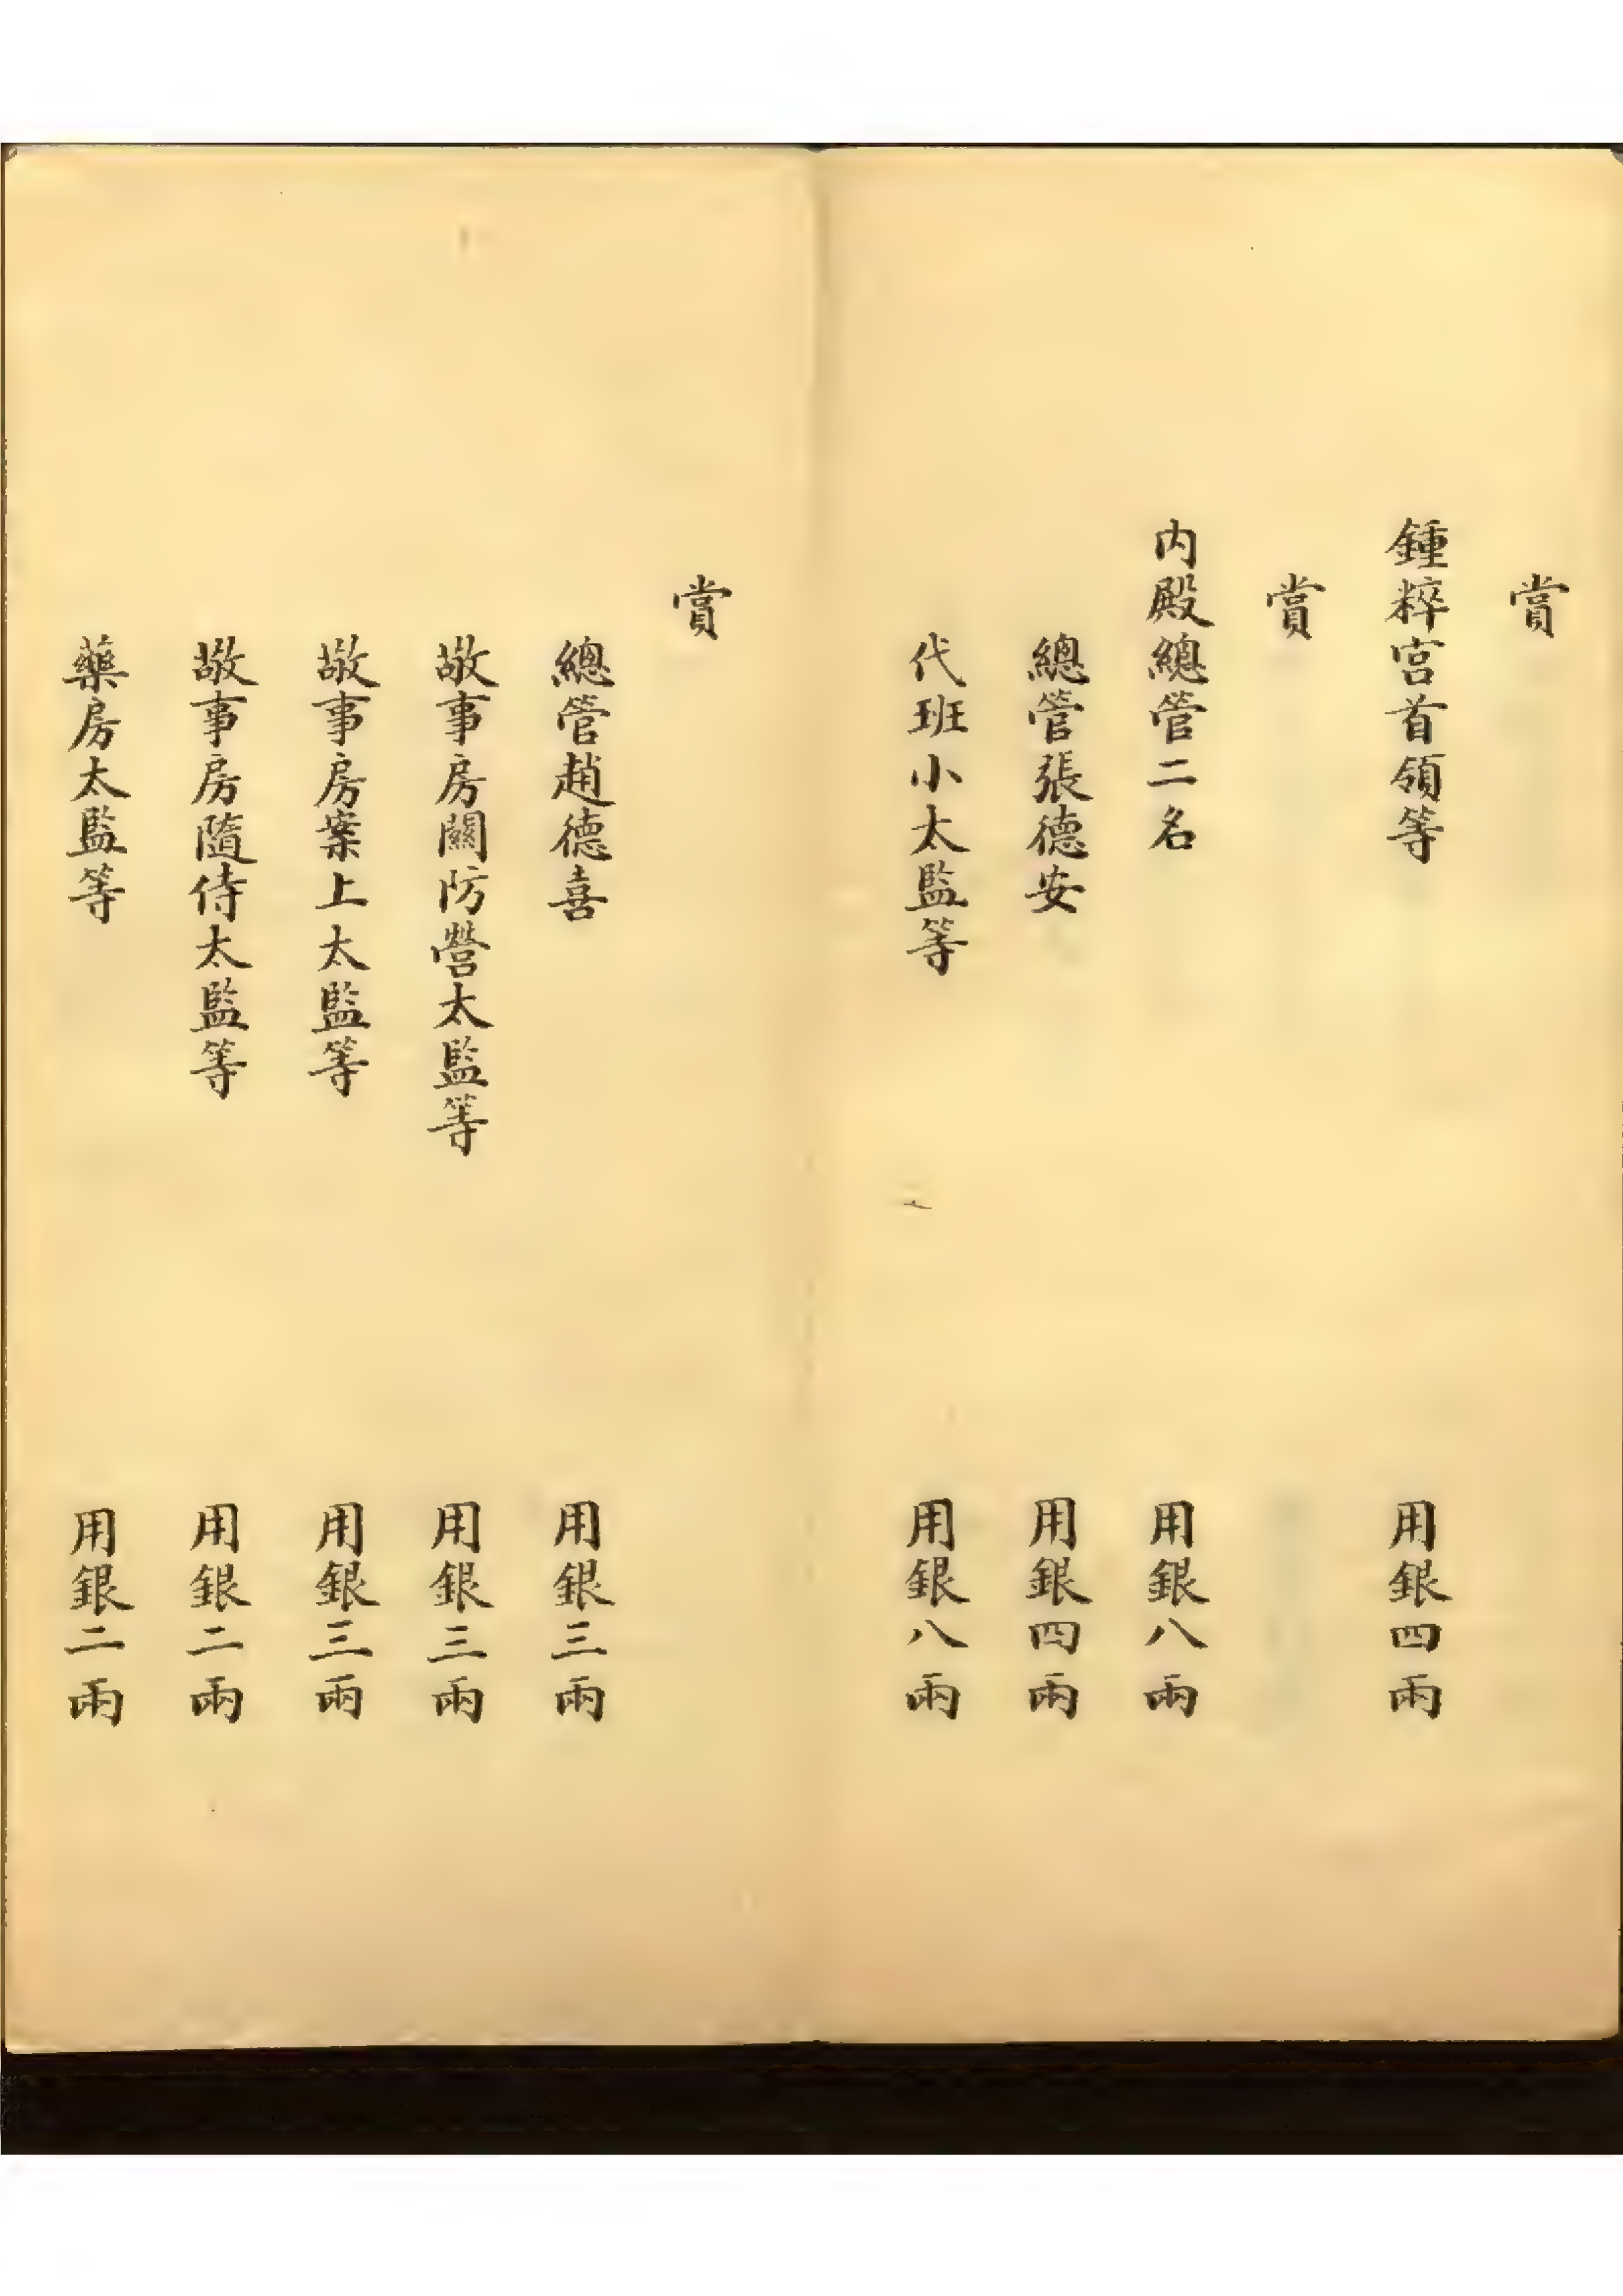 賞
鍾粹宮首領等 用銀四兩
賞
內殿總管二名 用銀八兩
總管張德安 用銀四兩
代班小太監等 用銀八兩
賞
總管趙德喜 用銀三兩
敬事房關防營太監等 用銀三兩
敬事房案上太監等 用銀三兩
敬事房隨侍太監等 用銀二兩
藥房太監等 用銀二兩